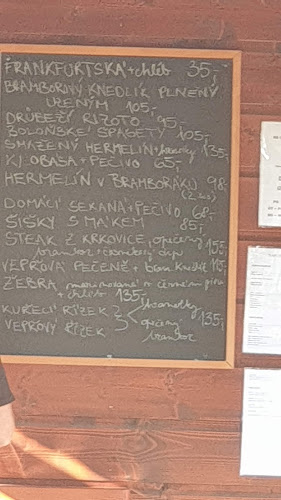 FRANKFURTSKÁ + chléb 35,-
BRAMBOROVÝ KNEDLÍK PLNĚNÝ
UZENÝM 105,-
DRŮBEŽÍ RIZOTO 95,-
BOLOŇSKÉ ŠPAGETY 105,-
SMAŽENÝ HERMELÍN + 135,-
KLOBÁSA + PEČIVO 65,-
HERMELÍN V BRAMBORÁKU 98,-
DOMÁCÍ SEKANÁ + PEČIVO 68,-
ŠIŠKY S MÁKEM 85,-
STEAK Z KRKOVICE, opečený 155,-
brambor +
VEPŘOVÁ PEČENĚ + bram knedlík 115,-
ŽEBRA marinovaná v černém pivu
+ chléb 135,-
KUŘECÍ ŘÍZEK hranolky
VEPŘOVÝ ŘÍZEK opečený 135,-
brambor